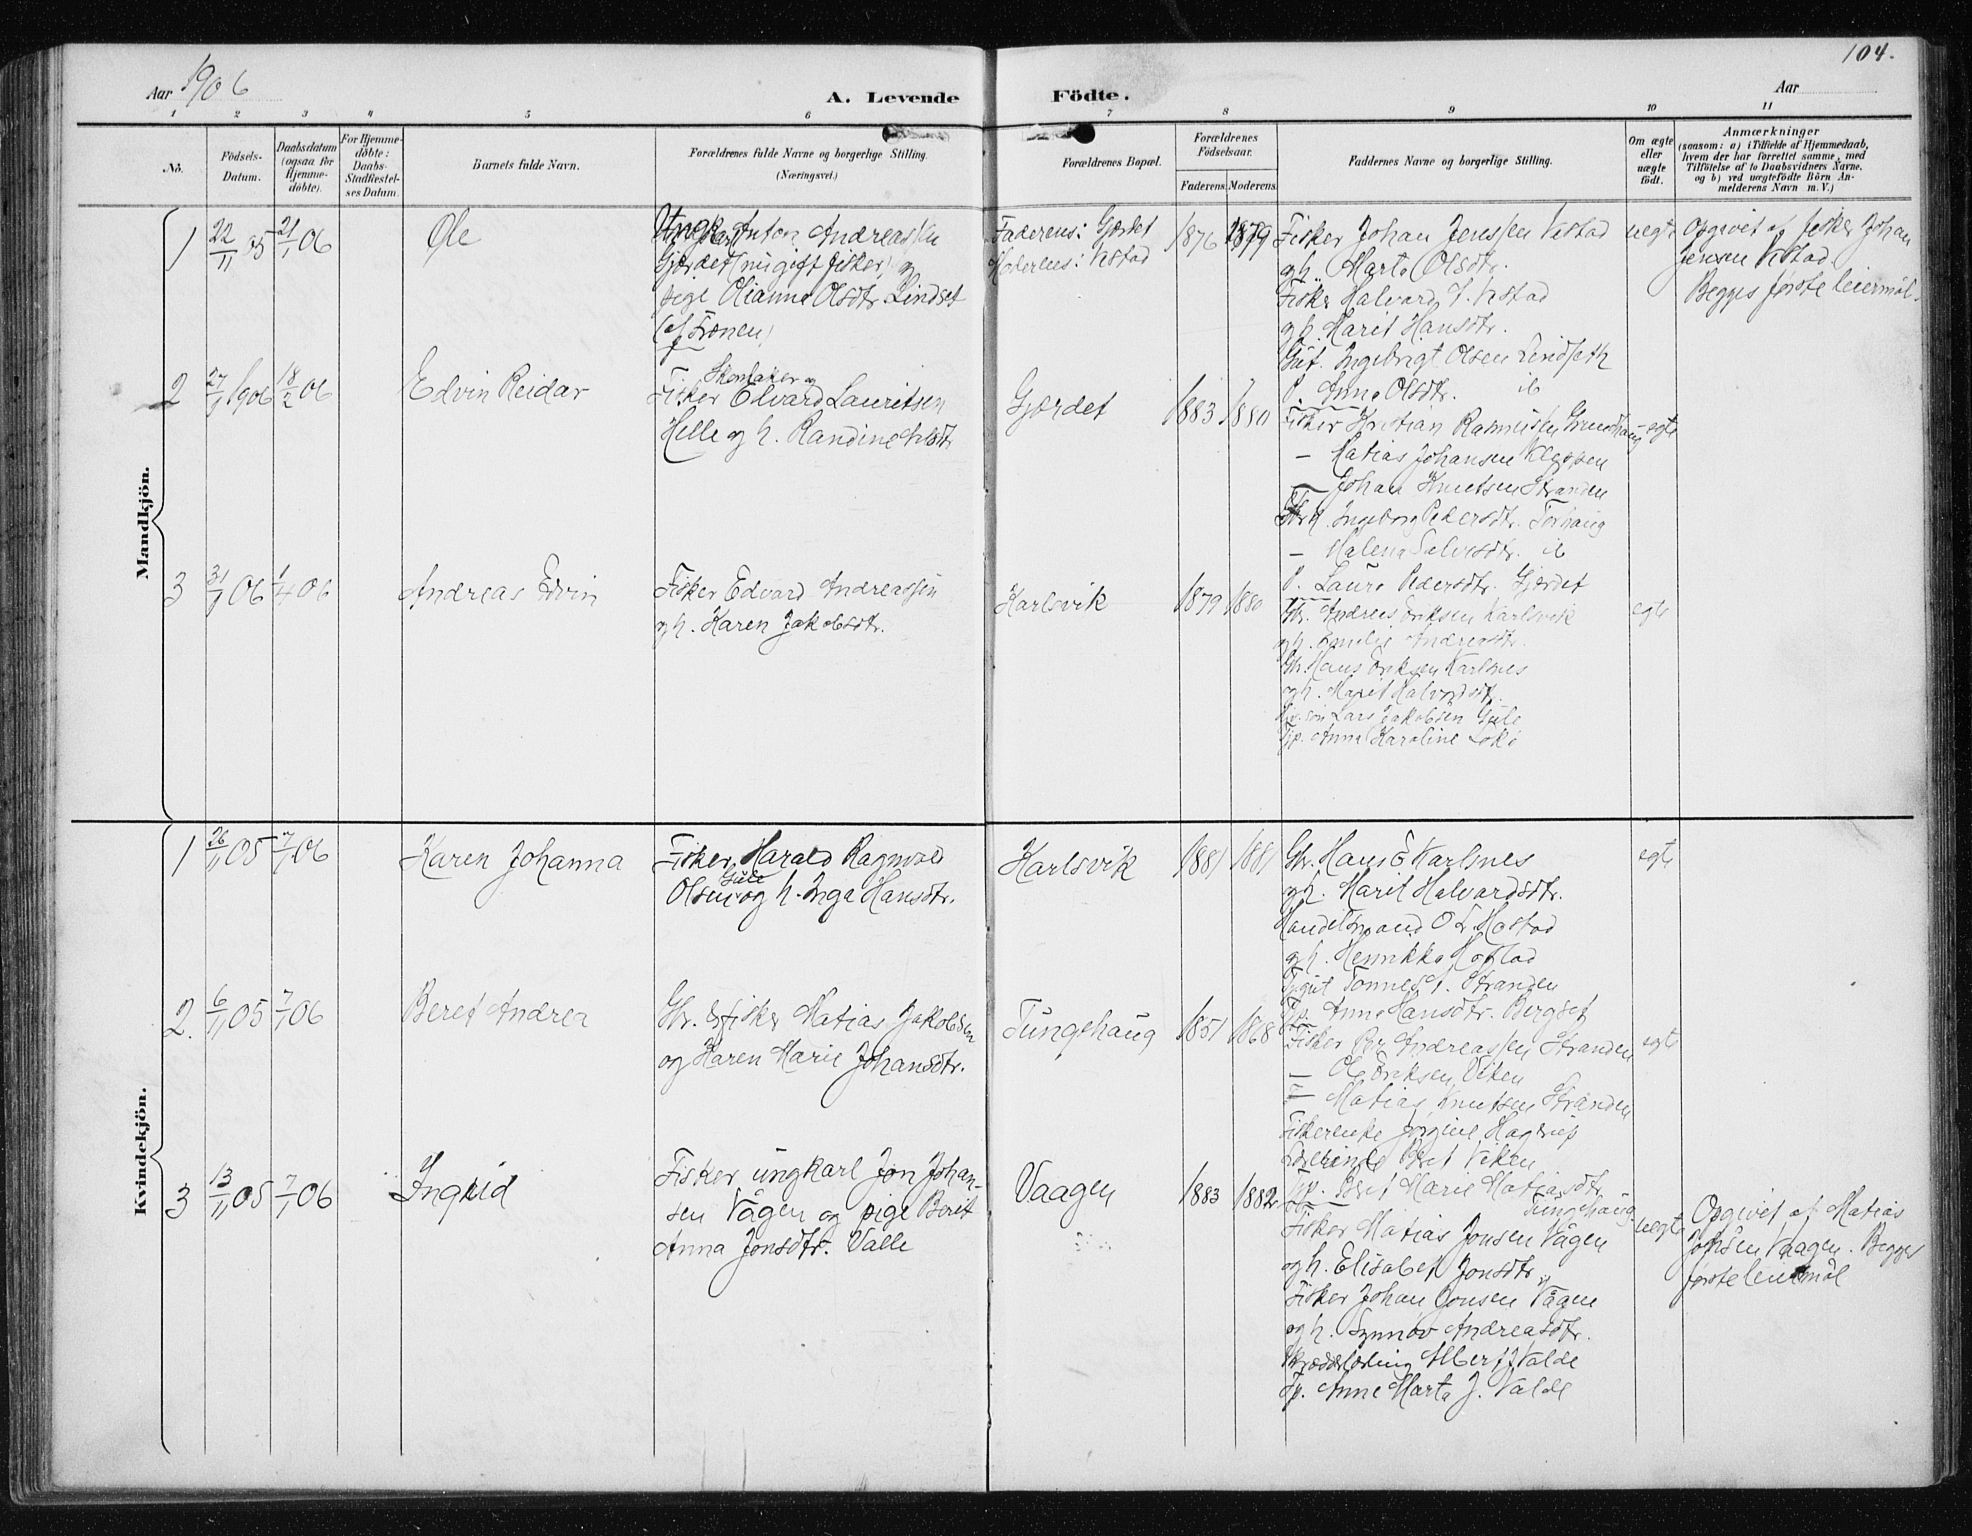 104.
Aar 1906
A. Levende Födte.
Aar
1 2 3 4 5 6 7 8 9 10 11
No.
Födsels-Datum.
Daabsdatum (ogsaa for Hjemme-döbte).
For Hjemme-döbte: Daabs-Stadfestel-ses Datum.
Barnets fulde Navn.
Forældrenes fulde Navne og borgerlige Stilling. (Næringsvei.)
Forældrenes Bopæl.
Forældrenes Födselsaar.
Faderens. Moderens.
Faddernes Navne og borgerlige Stilling.
Om ægte eller uægte födt.
Anmærkninger
(saasom: a) i Tilfælde af Hjemmedaab,
hvem der har forrettet samme, med
Tilföielse af to Daabsvidners Navne,
og b) ved uægtefödte Börn An-
melderens Navn m. V.)
Mandkjön.
1 22/11 05 21/1 06 Ole
Anton Andreassen
Gjærdet (nu gift fisker) og
pige Olianna Olsdtr. Lindset
(af Frænen)
Faderens: Gjærdet
Moderens: Vestad
1876 1879
Fisker Johan Jenssen Vestad
og h. Marta Olsdtr.
Fisker Halvard J. Vestad
og h. Marit Hansdtr.
Gut. Ingebrigt Olsen Lindseth
P. Anna Olsdtr. ib
uegte
Opgivet af fisker Johan
Jensen Vestad.
Begges første leiermål.
2 27/1 1906 18/2 06 Edvin Reidar
Skomaker og
Fisker Edvard Lauritsen
Helle og h. Randine Olsdtr
Gjærdet
1883 1880
Fisker Kristian Rasmussen Grundhaug
— Matias Johansen Kleppen
— Johan Knutsen Stranden
Ingeborg Pedersdtr. Torhaug
— Malena ib
P. Laura Pedersdtr. Gjerdet
egte
3 31/1 06 1/4 06 Andreas Edvin
Fisker Edvard Andreassen
og h. Karen Jakobsdtr.
Karlsvik
1879 1880
Gbr. Andreas Eriksen Karlsvik
og h. Emilie Andreasdtr.
Gbr. Hans Eriksen Karlsnes
og h. Marit Halvardsdtr.
Lars Jakobsen Gule
Tjp. Anna Karoline
egte
Kvindekjön.
1 26/11 05 7/1 06 Karen Johanna
Fisker Harald Ragnvald
Gule
Olsen og h. Inga Hansdtr.
Karlsvik
1881 1881
Gbr. Hans E Karlsnes
og h. Marit Halvardsdtr.
Handelsmand O L Hostad
og h. Henrikka Hostad
Tjgut Tønnes J. Stranden
Tjp. Anna Hansdtr. Bergset
egte
2. 6/11 05 7/1 06 Beret Andrea
Gbr. & fisker Matias Jakobsen
og Karen Marie Johansdtr.
Tungehaug
1851 1868
Fisker Per Andreassen Stranden
— Ole Eriksen Viken
— Matias Knutsen Stranden
Fiskerenke Jørgine Hagerup
Lærerinde Beret Viken
Tjp. Beret Marie Matiasdtr
Tungehaug
egte
3 13/11 05 7/1 06 Ingrid
Fisker ungkarl Jon Johan-
sen Vågen og pige Berit
Anna Jonsdtr. Valle
Vaagen
1883 1882
Fisker Matias Jonsen Vågen
og h. Elisabet Jonsdtr
Fisker Johan Jonsen Vågen
og h. Synnøv Andreasdtr.
Skrædderlærling Albert J Valde
Tjp. Anne Marta J. Valde
uegte
Opgivet af Matias
Johsen Vaagen. Begges
første leiermål